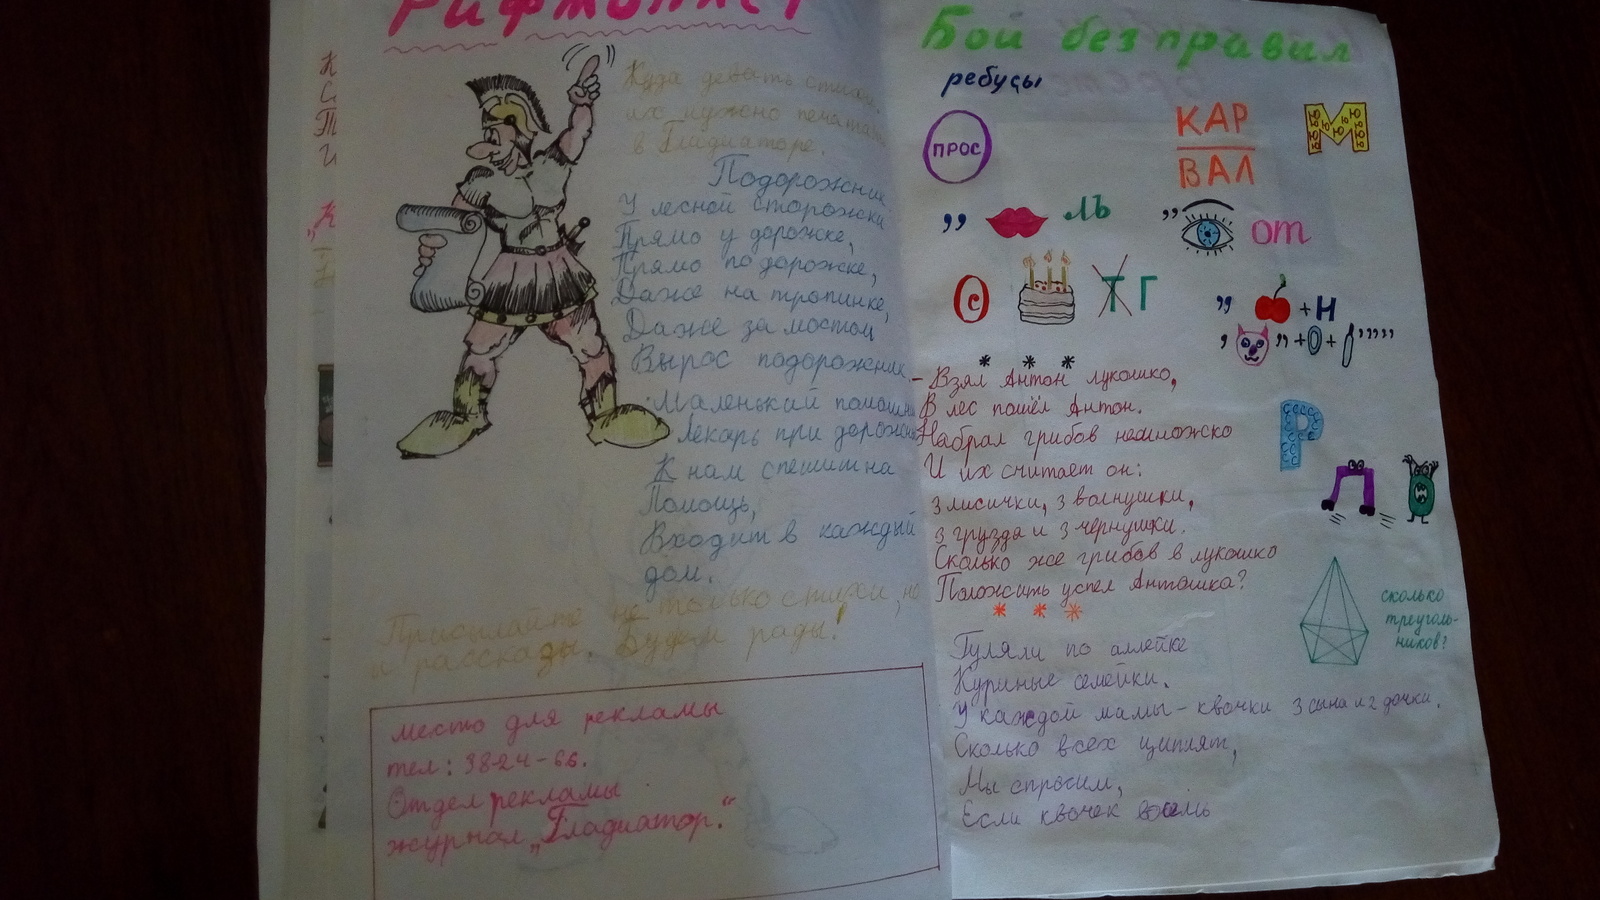 Рифмоплёт
Куда девать стихи.
их нужно печатать
в Гладиаторе.
Подорожник
У лесной сторожки
Прямо у дорожке,
Прямо по дорожке,
Даже на тропинке,
Даже за мостом
Вырос подорожник
Маленький помошник
Лекарь при дорожный
К нам спешит на
Помощь,
Входит в каждый
дом.
Присылайте не только стихи, но
и рассказы. Будем рады!
место для рекламы
тел: 38-24-66.
Отдел рекламы
журнал „Гладиатор."
Бой без правил
ребусы
ПРОС
КАР
ВАЛ
М
,, ль
,, от
С Т Г
,, +Н
, ,, +0+ ,,,,,
* * *
- Взял Антон лукошко,
В лес пошёл Антон.
Набрал грибов немножко
И их считает он:
3 лисички, 3 волнушки,
3 грузда и 3 чернушки.
Сколько же грибов в лукошко
Положить успел Антошка?
Р
Л
сколько
треуголь-
ников?
* * *
Гуляли по аллейке
Куриные семейки.
У каждой мамы - квочки 3 сына и 2 дочки.
Сколько всех цыплят,
Мы спросим,
Если квочек